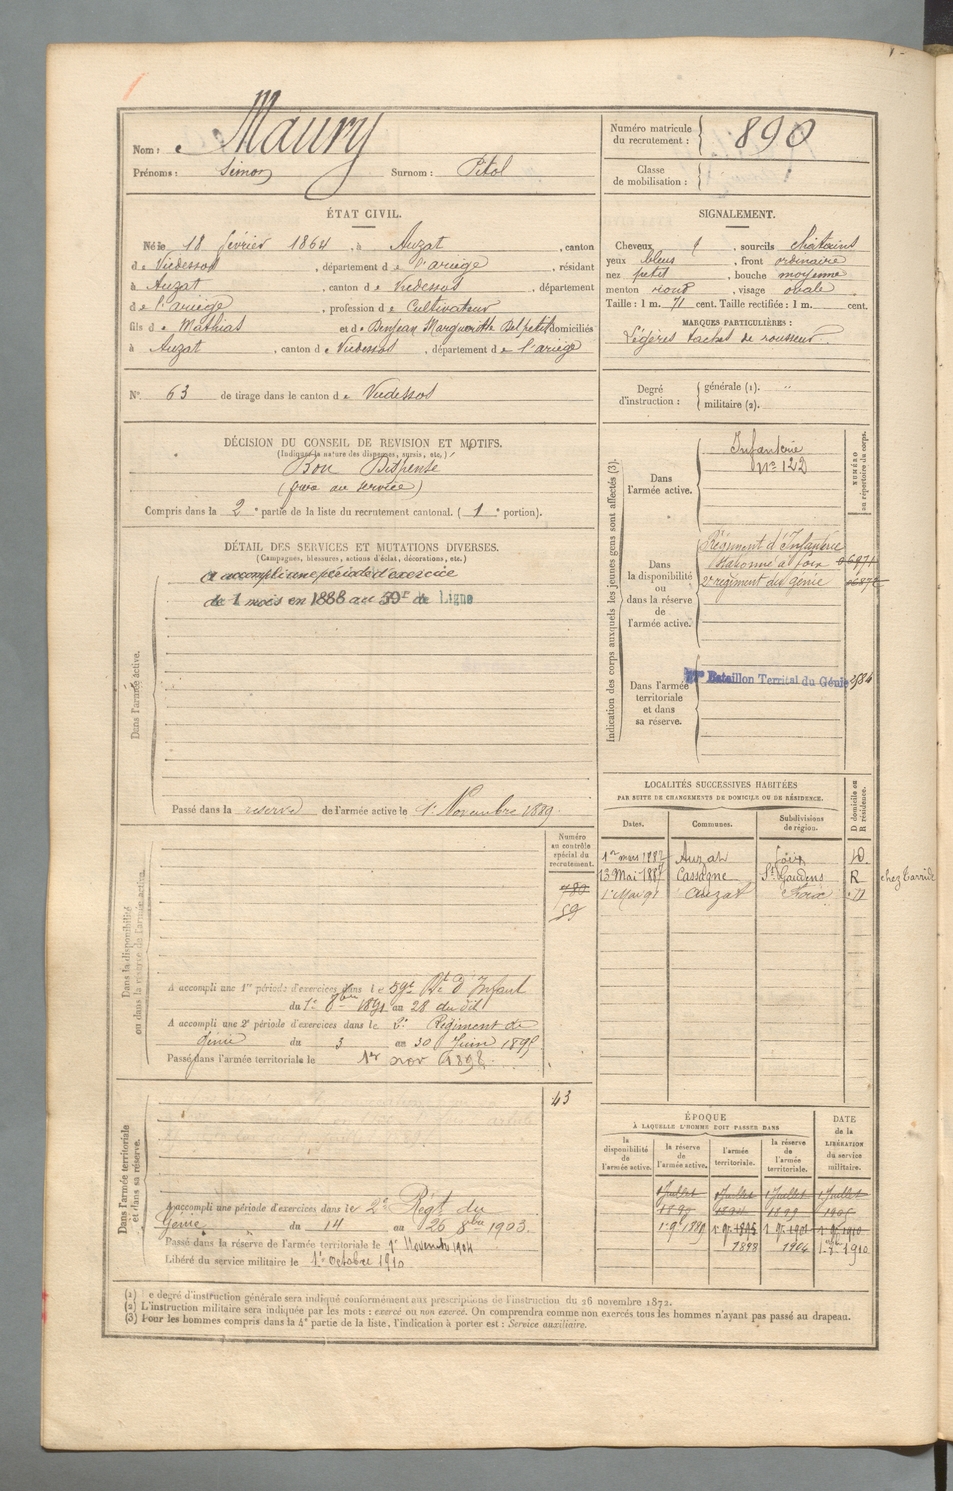 Nom : Maury
Prénoms : Simon Surnom : Pitol
Numéro matricule du recrutement : 890
Classe de mobilisation :
ÉTAT CIVIL.
Né le 18 février 1864, à Auzat, canton
de Vicdessos, département de l'ariège, résidant
à Auzat, canton de Vicdessos, département
de l'ariège, profession de Cultivateur
fils de Mathias et de Benjean Marguerite Belpetit domiciliés
à Auzat, canton de Vicdessos, département de l'ariège
N° 63 de tirage dans le canton de Vicdessos
SIGNALEMENT.
Cheveux , sourcils châtains
yeux bleus, front ordinaire
nez petit, bouche moyenne
menton rond, visage ovale
Taille : 1 m. 71 cent. Taille rectifiée : 1 m. cent.
MARQUES PARTICULIÈRES :
Légères taches de rousseur
Degré d'instruction : générale (1). "
militaire (2).
DÉCISION DU CONSEIL DE REVISION ET MOTIFS.
(Indiquer la nature des dispenses, sursis, etc.)
Bon Dispensé
(frère au service)
Compris dans la 2e partie de la liste du recrutement cantonal. (1e portion).
DÉTAIL DES SERVICES ET MUTATIONS DIVERSES.
(Campagnes, blessures, actions d'éclat, décorations, etc.)
Dans l'armée active.
A accompli une période d'exercice
de 1 mois en 1888 au 59E de Ligne
Passé dans la réserve de l'armée active le 1er Novembre 1889.
Indication des corps auxquels les jeunes gens sont affectés (3).
NUMÉRO au répertoire du corps.
Dans l'armée active.
Infanterie
N° 122
Dans la disponibilité ou dans la réserve de l'armée active.
Régiment d'Infanterie
stationné à foix
2e régiment du génie
Dans l'armée territoriale et dans sa réserve.
Bataillon Territal du Génie
LOCALITÉS SUCCESSIVES HABITÉES
PAR SUITE DE CHANGEMENTS DE DOMICILE OU DE RÉSIDENCE.
Dates. Communes. Subdivisions de région. D domicile ou R résidence.
1er mars 1887 Auzat foix D.
13 Mai 1887 Cassagne St Gaudens R chez Tarride
1er Mai 91 Auzat Foix D
Dans la disponibilité ou dans la réserve de l'armée active.
Numéro au contrôle spécial du recrutement.
780
59
A accompli une 1re période d'exercices dans le 59e Rt d'Infant
du 1er 8bre 1891 au 28 du dit
A accompli une 2e période d'exercices dans le 2e Régiment de
génie du 3 au 30 Juin 1895
Passé dans l'armée territoriale le 1er nov 1898.
Dans l'armée territoriale et dans sa réserve.
43
A accompli une période d'exercices dans le 2e Régt du
Génie du 14 au 26 8bre 1903.
Passé dans la réserve de l'armée territoriale le 1er Novembre 1904
Libéré du service militaire le 1er Octobre 1910
ÉPOQUE
À LAQUELLE L'HOMME DOIT PASSER DANS
la disponibilité de l'armée active. la réserve de l'armée active. l'armée territoriale. la réserve de l'armée territoriale. DATE de la LIBÉRATION du service militaire.
1 Juillet 1 Juillet 1 Juillet 1 Juillet
1898 1904 1910
(1) Le degré d'instruction générale sera indiqué conformément aux prescriptions de l'instruction du 26 novembre 1872.
(2) L'instruction militaire sera indiquée par les mots : exercé ou non exercé. On comprendra comme non exercés tous les hommes n'ayant pas passé au drapeau.
(3) Pour les hommes compris dans la 4e partie de la liste, l'indication à porter est : Service auxiliaire.